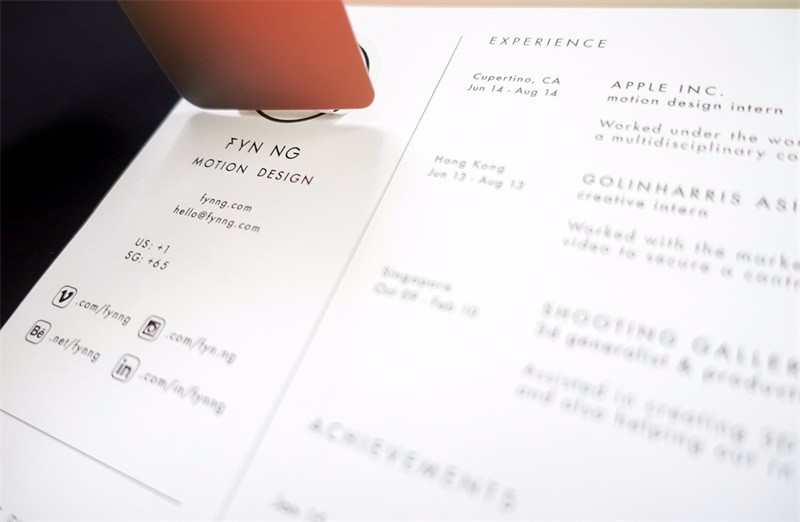 FYN NG
MOTION DESIGN
fynng.com
hello@fynng.com
US: +1
SG: +65
.com/fynng
.com/fyn.ng
Bē .net/fynng
in .com/in/fynng
EXPERIENCE
Cupertino, CA
Jun 14 - Aug 14
APPLE INC.
motion design intern
Worked under the
a multidisciplinary
Hong Kong
Jun 13 - Aug 13
GOLINHARRIS
creative intern
Worked with the
video to secure a
Singapore
Oct 09 - Feb 10
SHOOTING
3d generalist &
Assisted in creating
and also helping out in
ACHIEVEMENTS
Jan 10